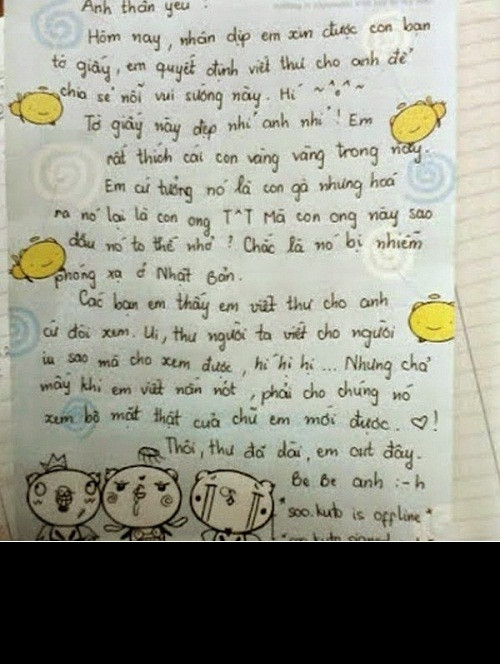 Anh thân yêu !
Hôm nay, nhân dịp em xin được con bạn
tờ giấy, em quyết định viết thư cho anh để
chia sẻ nỗi vui sướng này. Hí ~^o^~
Tờ giấy này đẹp nhỉ anh nhỉ! Em
rất thích cái con vàng vàng trong này.
Em cứ tưởng nó là con gà nhưng hoá
ra nó lại là con ong T^T Mà con ong này sao
đầu nó to thế nhở? Chắc là nó bị nhiễm
phóng xạ ở Nhật Bản.
Các bạn em thấy em viết thư cho anh
cứ đòi xem. Ui, thư người ta viết cho người
iu sao mà cho xem được, hí hí hi... Nhưng chả
mấy khi em viết nắn nót, phải cho chúng nó
xem bộ mặt thật của chữ em mới được. ♡!
Thôi, thư đã dài, em out đây.
Be Be anh :-h
"soo.kute is offline"